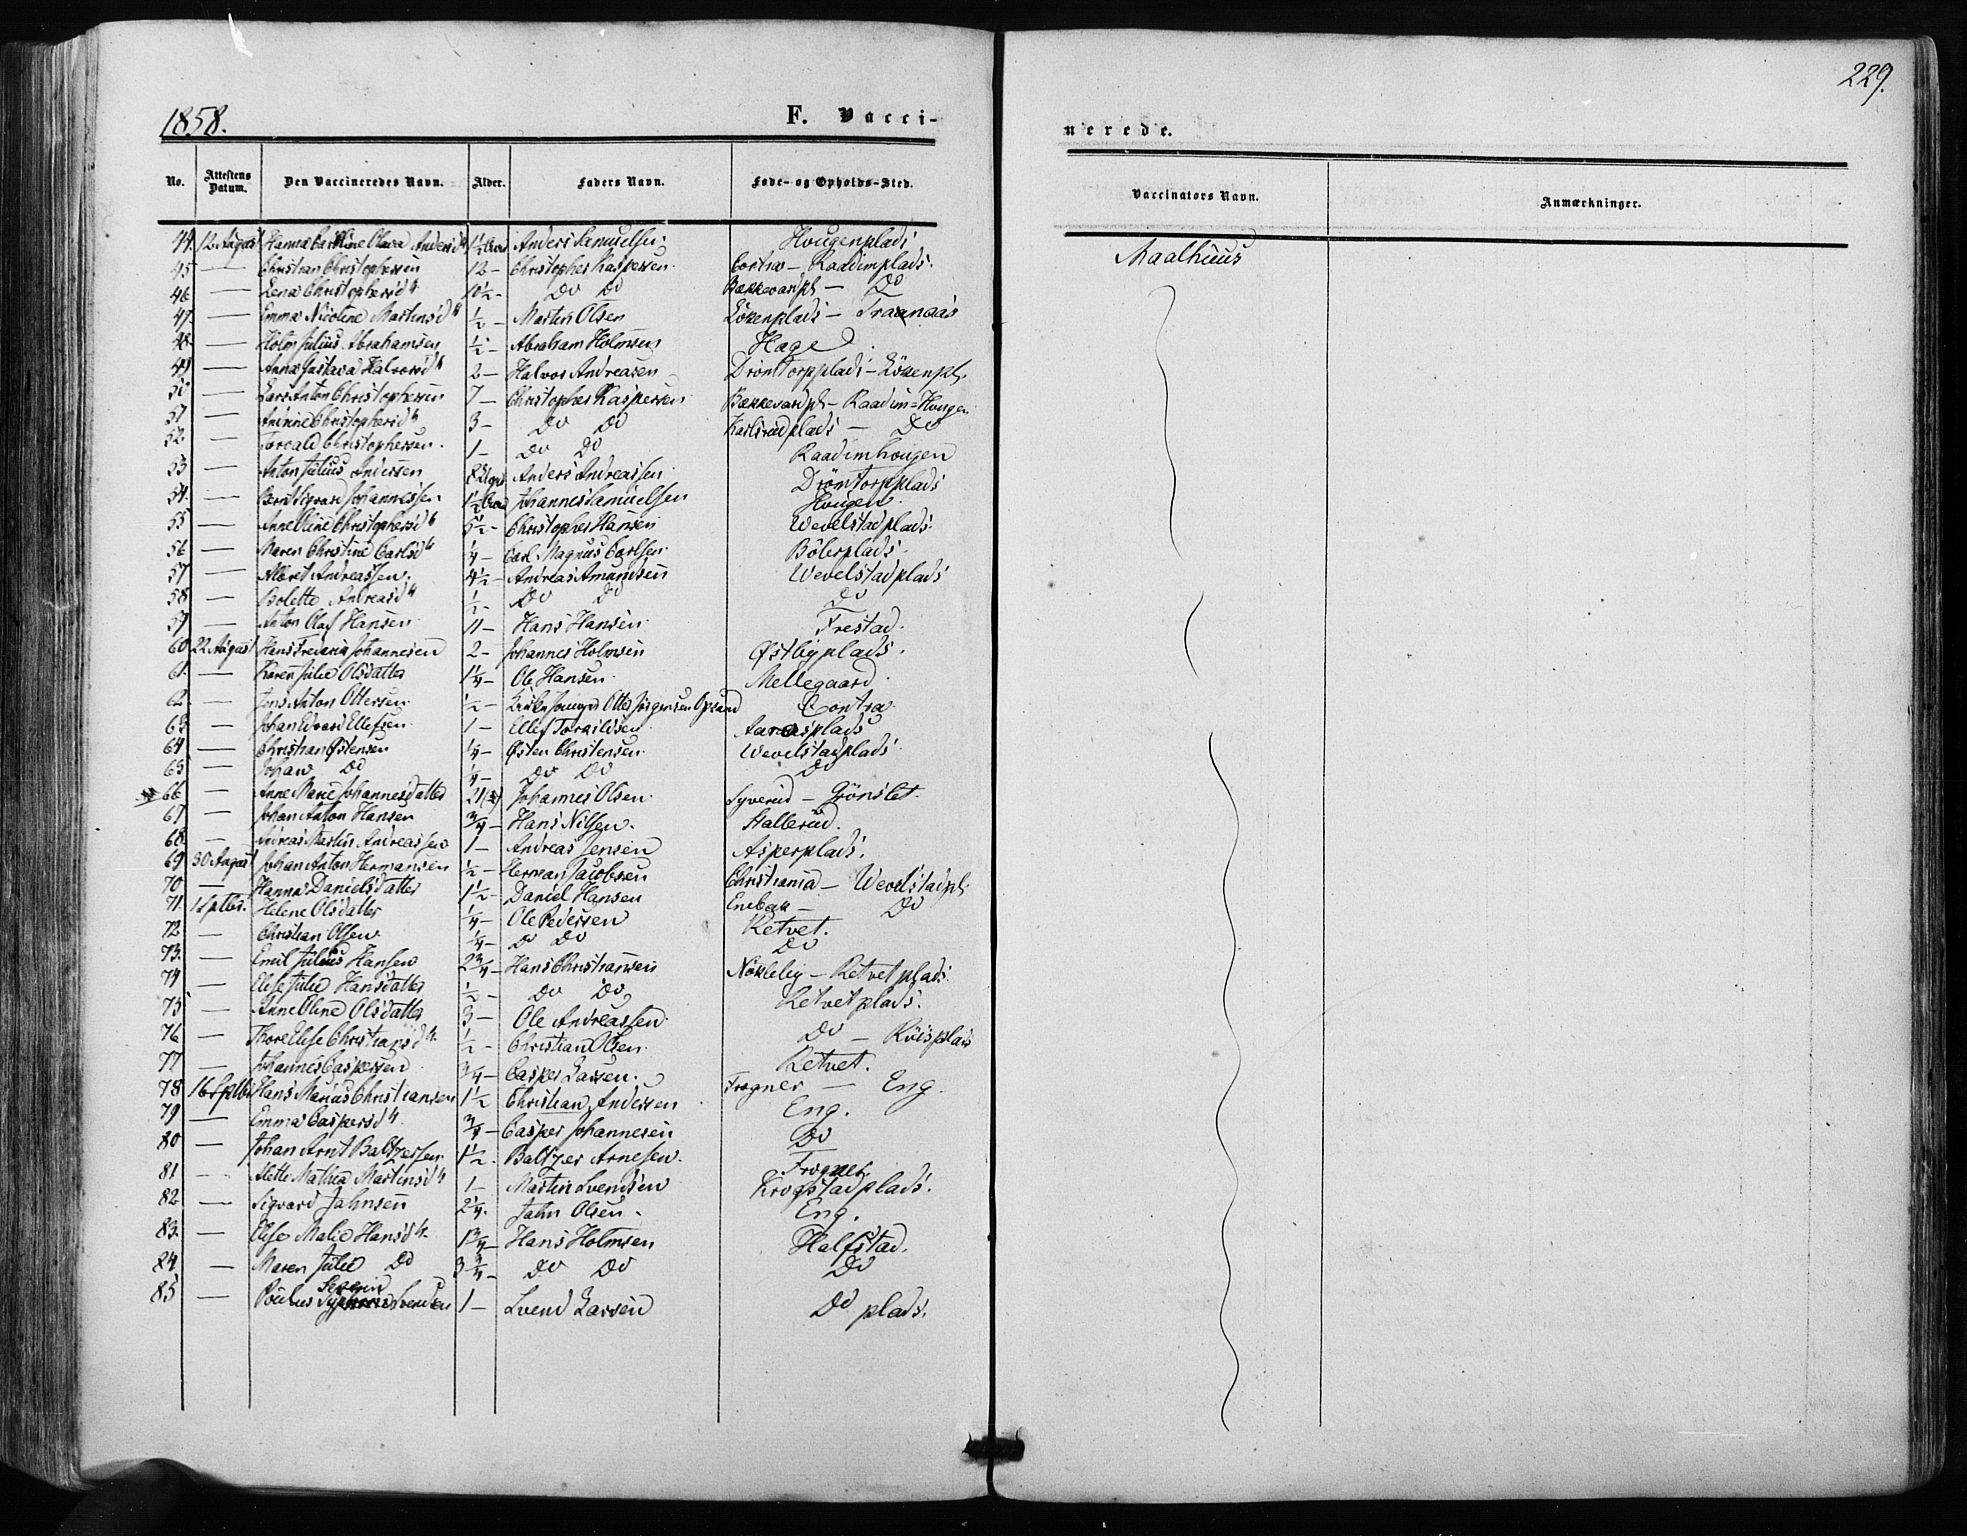 229.
1858.
F. Vacci-
nerede.
No. Attestens Datum. Den Vaccineredes Navn. Alder. Faders Navn. Føde- og Opholds-Sted. Vaccinators Navn. Anmærkninger.
44. 12 August Hanna Caroline Olava Andersd. 1½ Aar Anders Samuelsen. Hougenplads Maalhuus
45 — Christian Christophersen 12 — Christopher Kaspersen. Contra — Raadimplads.
46 — Lena Christophersd. 10½ — Do Do Bækkevardpl — Do
47. — Emma Nicoline Martinsd. ½ — Martin Olsen Lökenplads — Traanaas
48. — Holm Julius Abrahamsen ½ — Abraham Holmsen Hage.
49 — Anna Gustava Halvorsd. 2 — Halvor Andreasen — Drömtorpplads — Lökenpl.
50 — Lars Anton Christophersen 7 — Christopher Kaspersen Bækkevardpl — Raadim=Hougen
51 — Aninne Christophersd. 3 — Do Do Karlsrudplads — Do
52. — Torvald Christophersen. 1 — Do Do Raadimhougen
53 — Anton Julius Andersen Anders Andreassen Drömtorpplads
54. — Bernt Sigvard Johannessen 1½ Aar Johannes Samuelsen Hougen.
55 — Anne Oline Christophersd. 5½ — Christopher Hansen Wevelstadplads.
56 — Maren Christine Carlsd. ¼ — Carl Magnus Carlsen. Bölerplads.
57 — Albret Andreassen. 4½ — Andreas Amundsen Wevelstadplads
58 — Bolette Andreasd. ½ — Do Do Do
59 — Anton Olaf Hansen 11 — Hans Hansen. Frestad.
60. 22 August Hans Frederik Johannesen 2 — Johannes Holmsen Østbyplads.
61. — Karen Julie Olsdatter 1¼ — Ole Hansen Mellegaard.
62. — Jens Anton Ottersen ½ — Otter Jörgensen Opsund Contra
63 — Johan Edvard Ellefsen. 1 — Ellef Torgildsen. Aaraasplads
64 — Christian Østensen ¼ — Østen Christensen. Wevelstadplads.
65 — Johan Do ¼ — Do Do Do
66 — Anne Marie Johannesdatter 21 Johannes Olsen. Syverud — Grönslet.
67 — Johan Anton Hansen ¾ — Hans Nilsen. Stallerud.
68. — Andreas Martin Andreassen 1 — Andreas Jensen Asperplads.
69 30 August Johan Anton Hermansen ½ — Herman Jacobsen Christiania — Wevelstadpl.
70 — Hanna Danielsdatter 1½ — Daniel Hansen Enebak — Do
71. 1 Sptbr. Helene Olsdatter ¼ — Ole Pedersen Retvet.
72 — Christian Olsen ¼ — Do Do Do
73. — Emil Julius Hansen 2¾ — Hans Christiansen Nökleby — Retvetplads.
74 — Else Julie Hansdatter ½ — Do Do Retvetplads.
75 — Anne Oline Olsdatter 3 — Ole Andreassen Do — Röisplads
76 — Thore Else Christiansd. ½ — Christian Olsen. Retvet.
77 — Johannes Caspersen ¾ — Casper Larsen. Frogner — Eng.
78 16 Sptbr Hans Marius Christiansen 1½ Christian Andersen Eng.
79 — Emma Caspersd. ¾ — Casper Johannesen Do
80 — Johan Arnt Baltzersen. 1½. Baltzer Arnesen. Frogner
81 — Mette Mathea Martinsd. 1 — Martin Svendsen Krogstadplads.
82 — Sigvard Jahnsen 2¼. Jahn Olsen. Eng.
83. — Else Malie Hansd. 1¾ — Hans Holmsen Halfstad.
84 — Maren Julie Do 3¾ — Do Do Do
85 — Poulus Severin Svendsen 1 — Svend Larsen Do plads.